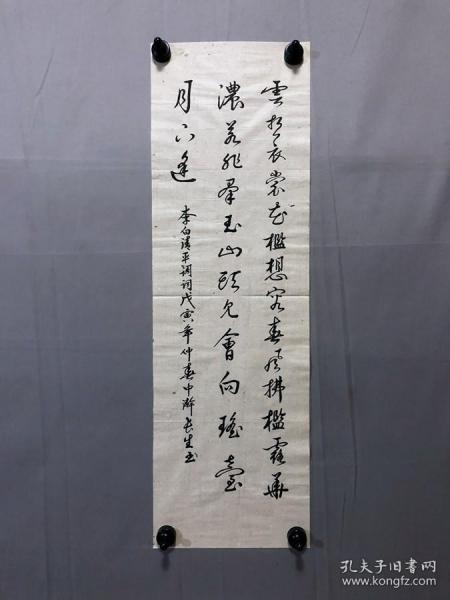 雲想衣裳花檻想容春風拂檻露華
濃若非羣玉山頭見會向瑤臺
月下逢
李白清平調詞戊寅年仲春中澣長生書
孔夫子旧书网
www.kongfz.com